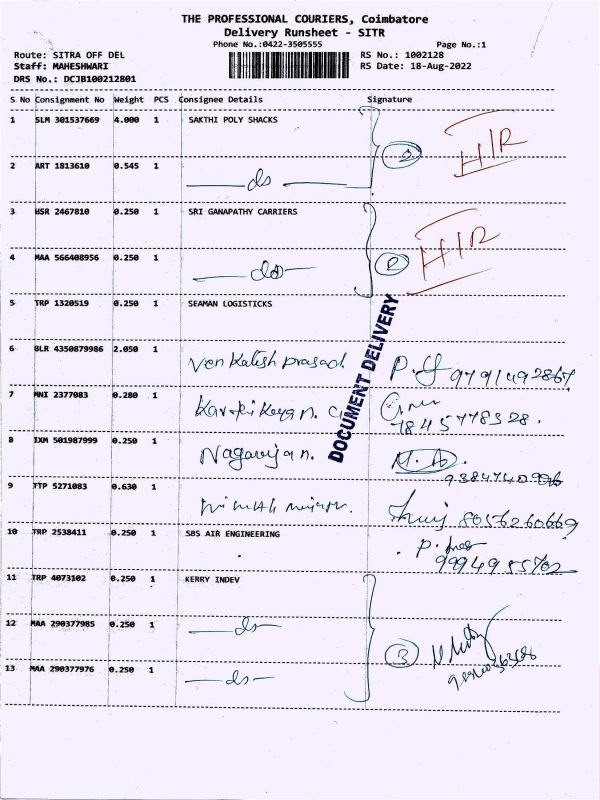 THE PROFESSIONAL COURIERS, Coimbatore
Delivery Runsheet - SITR
Phone No.:0422-3505555 Page No.:1
Route: SITRA OFF DEL RS No.: 1002128
Staff: MAHESHWARI RS Date: 18-Aug-2022
DRS No.: DCJB100212801
S No Consignment No Weight PCS Consignee Details Signature
1 SLM 301537669 4.000 1 SAKTHI POLY SHACKS
H/R
2 ART 1813610 0.545 1
ds
3 HSR 2467810 0.250 1 SRI GANAPATHY CARRIERS
H/R
4 MAA 566408956 0.250 1
ds
5 TRP 1320519 0.250 1 SEAMAN LOGISTICKS
DOCUMENT DELIVERY
6 BLR 4350879986 2.050 1 Venkatesh prasad.
7 MNI 2377083 0.280 1 Karthikeyan. G
7845778328.
8 IXM 501987999 0.250 1 Nagarajan.
9 TTP 5271083 0.630 1
8056260669
10 TRP 2538411 0.250 1 SBS AIR ENGINEERING
11 TRP 4073102 0.250 1 KERRY INDEV
12 MAA 290377985 0.250 1 ds
3
13 MAA 290377976 0.250 1 ds